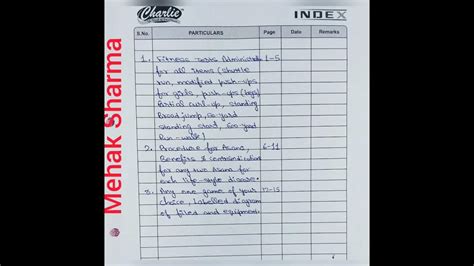 Charlie
INDEX
S.No. PARTICULARS Page Date Remarks
1. Fitness Tests Administration 1-5
for all items (Shuttle
run, modified push-ups
for girls, push-ups (boys)
Partial curl-up, standing
Broad jump, 50 yard
standing start, 600 yard
Run-walk)
2. Procedure for Asans, 6-11
Benefits & contraindication
for any two Asana for
each life-style disease.
3. Any one game of your 12-15
choice, Labelled diagram
of filed and equipment.
Mehak Sharma